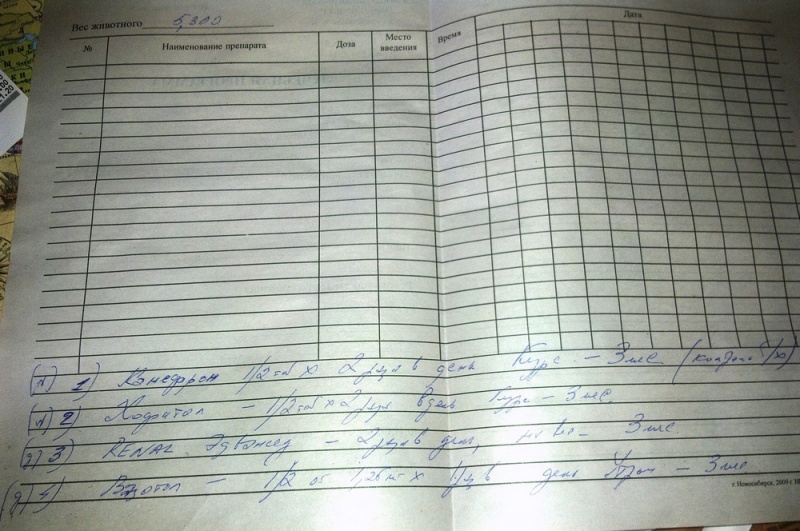 Вес животного 5,300
Дата
№ Наименование препарата Доза Место введения Время
1) Канефрон 1/2 таб х 2 раза в день Курс - 3 мес
2) Хофитол - 1/2 таб х 2 раза в день Курс - 3 мес.
3) RENAL Эдвансед - 2 раза в день, 3 мес
4) Вазотоп - 1/2 от 1,25 мг х 1 р в день - 3 мес
г. Новосибирск, 2009 г